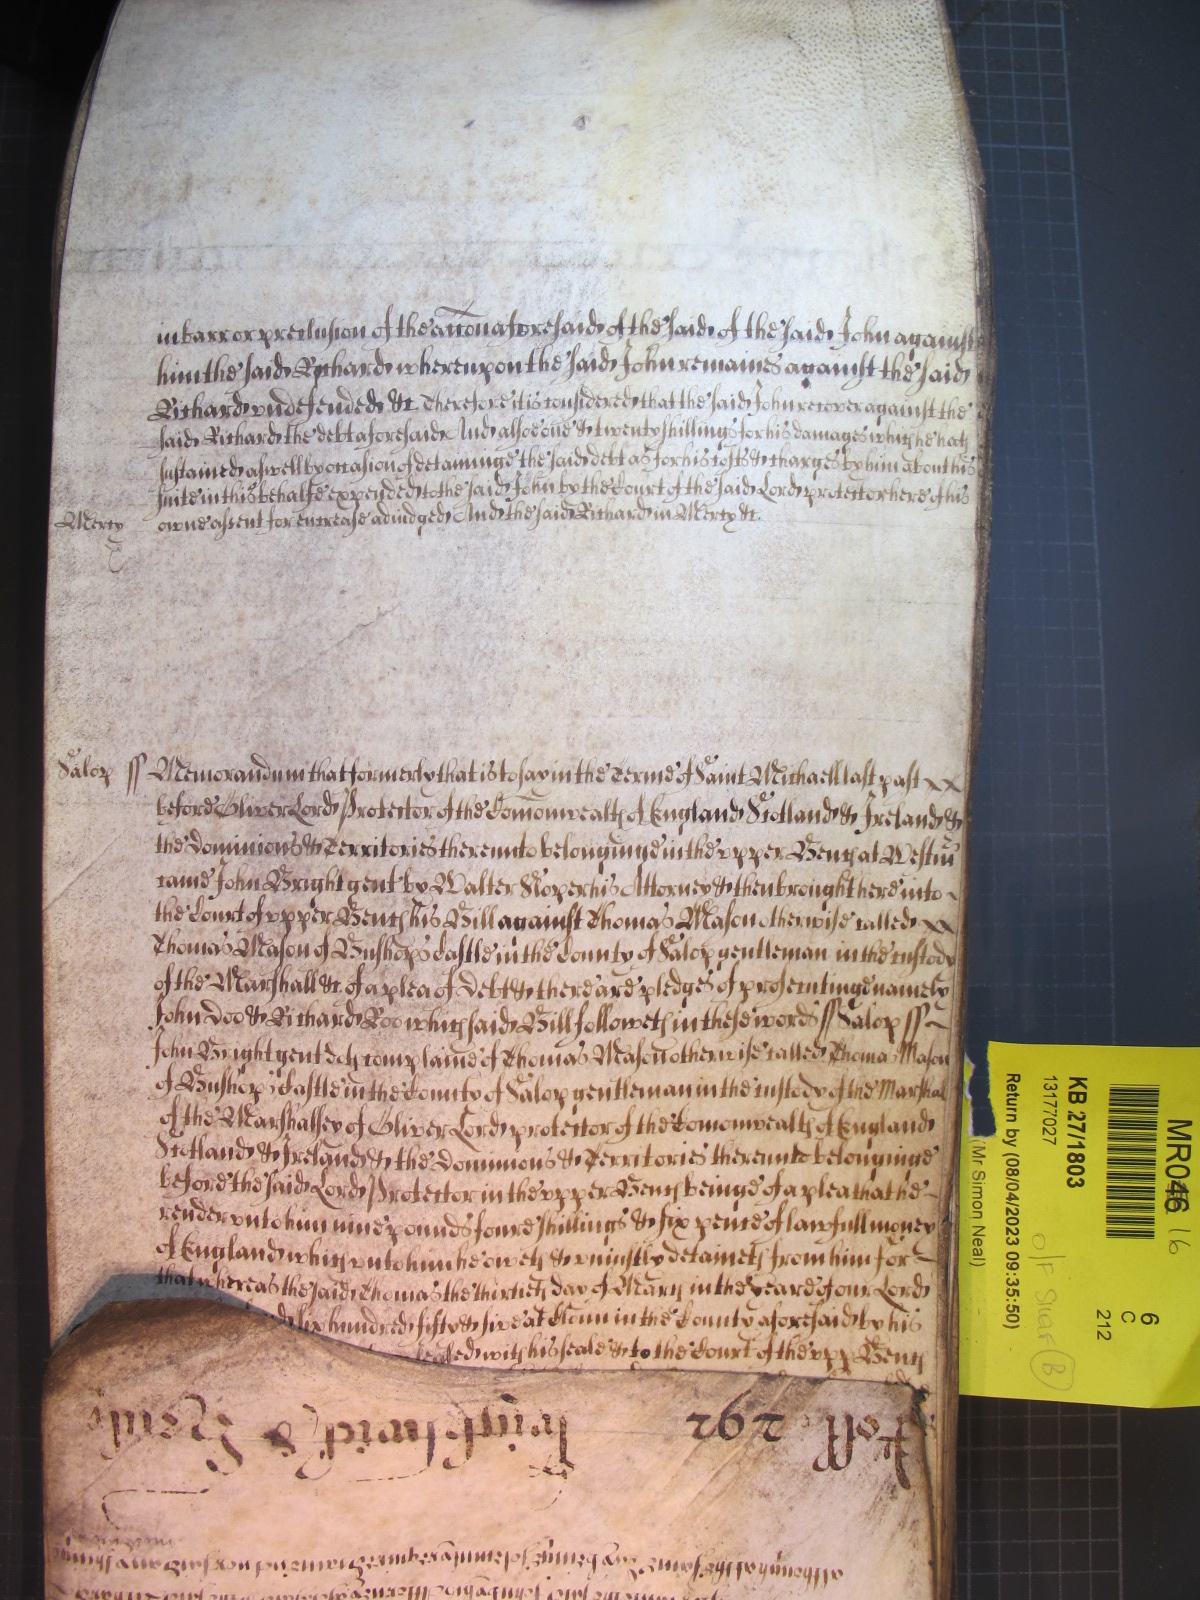 in barr or preclusion of the accōn aforesaid of the said of the said John against
him the said Richard whereupon the said John remaines against the said
Richard undefended &c. Therefore it is considered that the said John recover against the
said Richard the debt aforesaid And alsoe one & twenty shillings for his damages which he hath
susteined aswell by occasion of deteininge the said debt as for his costs & charges by him about his
suite in this behalfe expended to the said John by the Court of the said Lord protector here of his
Mercy owne assent for encrease adiudged And the said Richard in Mercy &c.
Salop ss Memorandum that formerly that is to say in the Terme of Saint Michaell last past
before Oliver Lord Protector of the Comōnwealth of England Scotland & Ireland &
the Dominions & Territories thereunto belonginge in the upper Bench at Westm̄
came John Bright gent by Walter Roper his Attorney & then brought here into
the Court of upper Bench his Bill against Thomas Mason otherwise called
Thomas Mason of Bushops Castle in the County of Salop gentleman in the custody
of the Marshall &c. of a plea of Debt & there are pledges of prosecutinge namely
John Doo & Richard Roo which said Bill followeth in these words ss Salop ss
John Bright gent doth complaine of Thomas Mason otherwise called Thomas Mason
of Bushops Castle in the County of Salop gentleman in the custody of the Marshal
of the Marshalsey of Oliver Lord protector of the Comonwealth of England
Scotland & Ireland & the Dominions & Territories thereunto belonginge
before the said Lord Protector in the upper Bench beinge of a plea that he
render unto him nine pounds foure shillings & six pence of lawfull money
of England which unto him he oweth & uniustly deteineth from him For
that whereas the said Thomas the thirtieth day of March in the yeare of our Lord
six hundred fifty & five at Clunn in the County aforesaid by his
sealed with his seale & to the Court of the upp Bench
Roll 292
MR046 16
6
C
212
KB 27/1803
13177027
Return by (08/04/2023 09:35:50)
(Mr Simon Neal)
O/F Shelf B